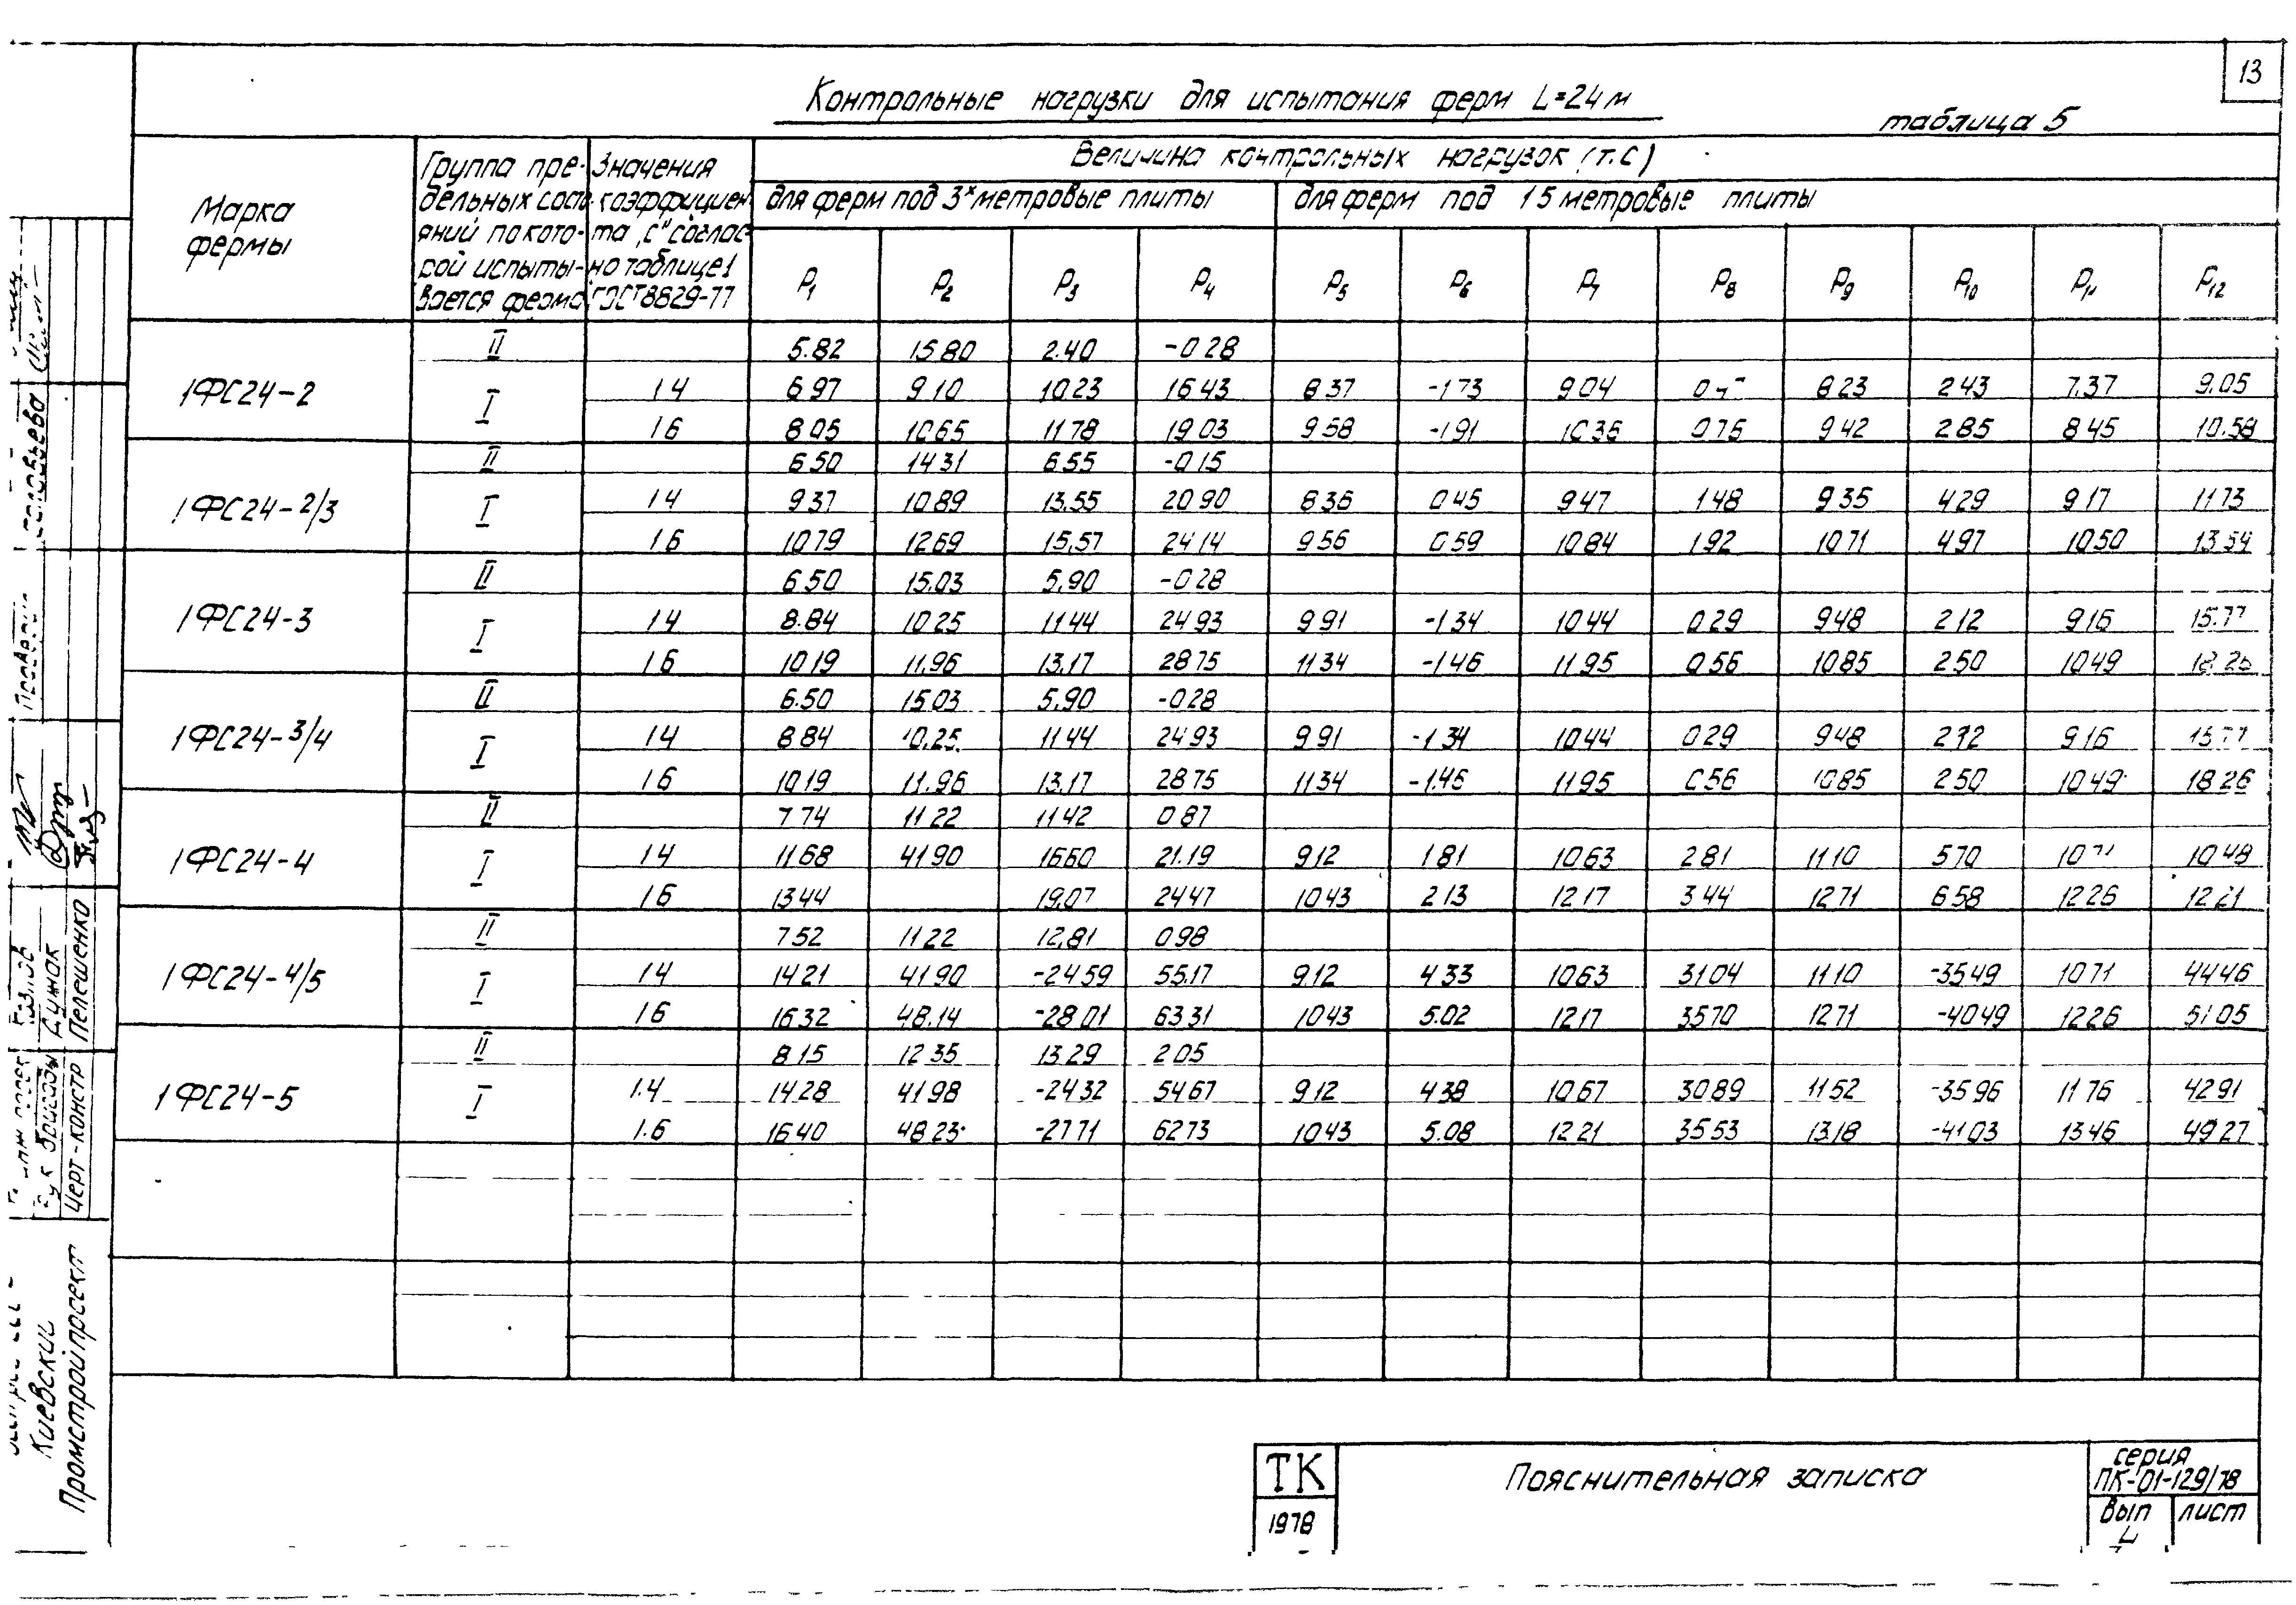 13
Контрольные нагрузки для испытания ферм L=24м
таблица 5
Марка фермы
Группа пре-
дельных сост
яний по кото-
рой испыты-
вается ферма
Значения
коэффициен-
та "С" соглас-
но таблице 1
ГОСТ 8829-77
Величина контрольных нагрузок (т.с)
для ферм под 3х метровые плиты
для ферм под 1 5 метровые плиты
P1 P2 P3 P4 P5 P6 P7 P8 P9 P10 P11 P12
1ФС24-2
II 5.82 15.80 2.40 -0 28
I 1 4 6 97 9 10 10 23 16 43 8 37 -1 73 9 04 8 23 2 43 7.37 9.05
1 6 8 05 10 65 11 78 19 03 9 58 -1 91 10 35 0 76 9 42 2 85 8 45 10.58
1ФС24-2/3
II 6 50 14 31 6 55 -0 15
I 1 4 9 37 10 89 13.55 20 90 8 36 0 45 9 47 1 48 9 35 4 29 9 17 11 73
1 6 10 79 12 69 15,57 24 14 9 56 0 59 10 84 1 92 10 71 4 97 10 50 13 54
1ФС24-3
II 6 50 15.03 5,90 -0 28
I 1 4 8.84 10 25 11 44 24 93 9 91 -1 34 10 44 0 29 9 48 2 12 9 16 15.77
1 6 10 19 11.96 13,17 28 75 11 34 -1 46 11 95 0 56 10 85 2 50 10 49 18 26
1ФС24-3/4
II 6.50 15 03 5,90 -0 28
I 1 4 8 84 10.25 11 44 24 93 9 91 -1 34 10 44 0 29 9 48 2 12 9 16 15 77
1 6 10 19 11.96 13,17 28 75 11 34 -1.46 11 95 0 56 10 85 2 50 10 49 18 26
1ФС24-4
II 7 74 11 22 11 42 0 87
I 1 4 11 68 41 90 16 60 21.19 9 12 1 81 10 63 2 81 11 10 5 70 10 71 10 48
1 6 13 44 19,07 24 47 10 43 2 13 12 17 3 44 12 71 6 58 12 26 12 21
1ФС24-4/5
II 7 52 11 22 12,81 0 98
I 1 4 14 21 41 90 -24 59 55.17 9.12 4 33 10 63 31 04 11 10 -35 49 10 71 44 46
1 6 16 32 48.14 -28 01 63 31 10 43 5.02 12 17 35 70 12 71 -40 49 12 26 51 05
1ФС24-5
II 8 15 12 35 13.29 2 05
I 1.4 14 28 41 98 -24 32 54 67 9 12 4 38 10 67 30 89 11 52 -35 96 11 76 42 91
1.6 16 40 48 23 -27 71 62 73 10 43 5.08 12 21 35 53 13.18 -41 03 13 46 49 27
Соловьева
Дужак
Пелешенко
Черт-констр
Киевский
Промстройпроект
ТК
1978
Пояснительная записка
серия
ПК-01-129/78
вып
лист